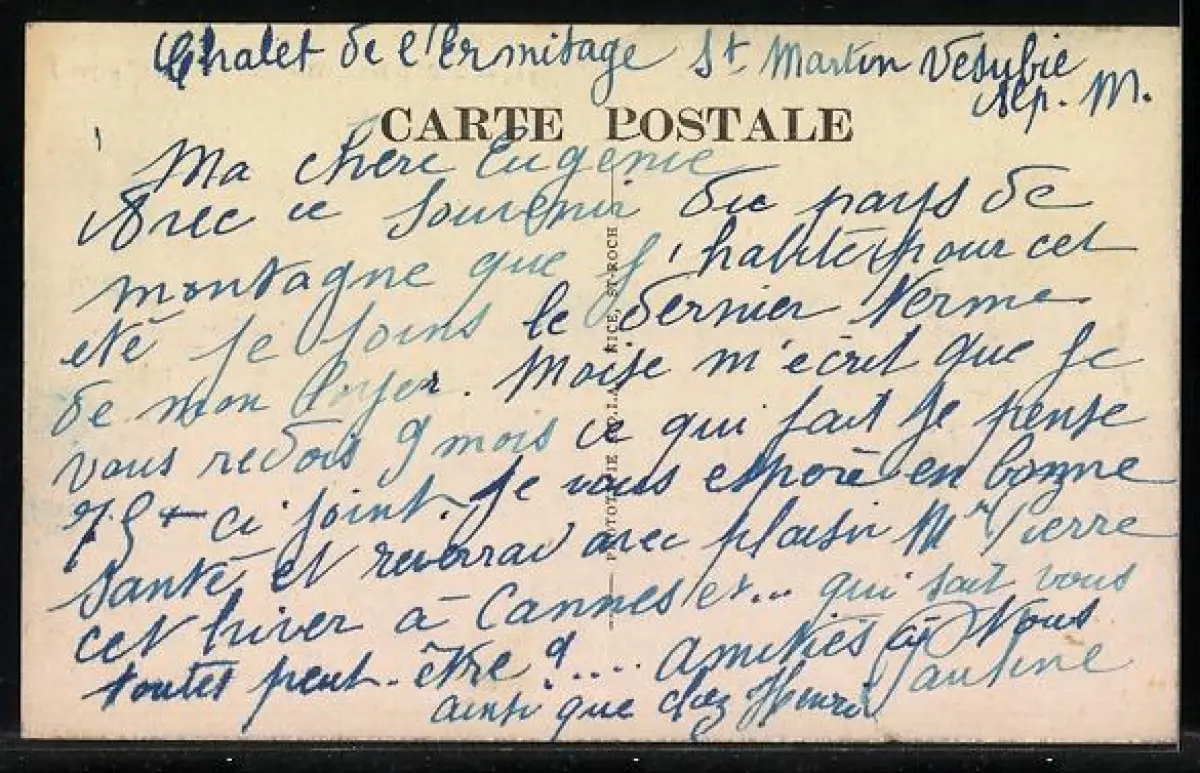 Chalet de l'Ermitage St Martin Vesubie
Alp. M.
CARTE POSTALE
Ma chère Eugenie
Avec ce souvenir du pays de
montagne que j'habite pour cet
eté je joins le dernier terme
de mon loyer. Moise m'ecrit que je
vous redois 9 mois ce qui fait je pense
ci joint. Je vous espère en bonne
santé et reverrai avec plaisir Mr Pierre
cet hiver à Cannes et... qui sait vous
toutes peut-être ? .... amitiés à tous
ainsi que chez Henri
PHOTOTYPIE NICE, ST-ROCH